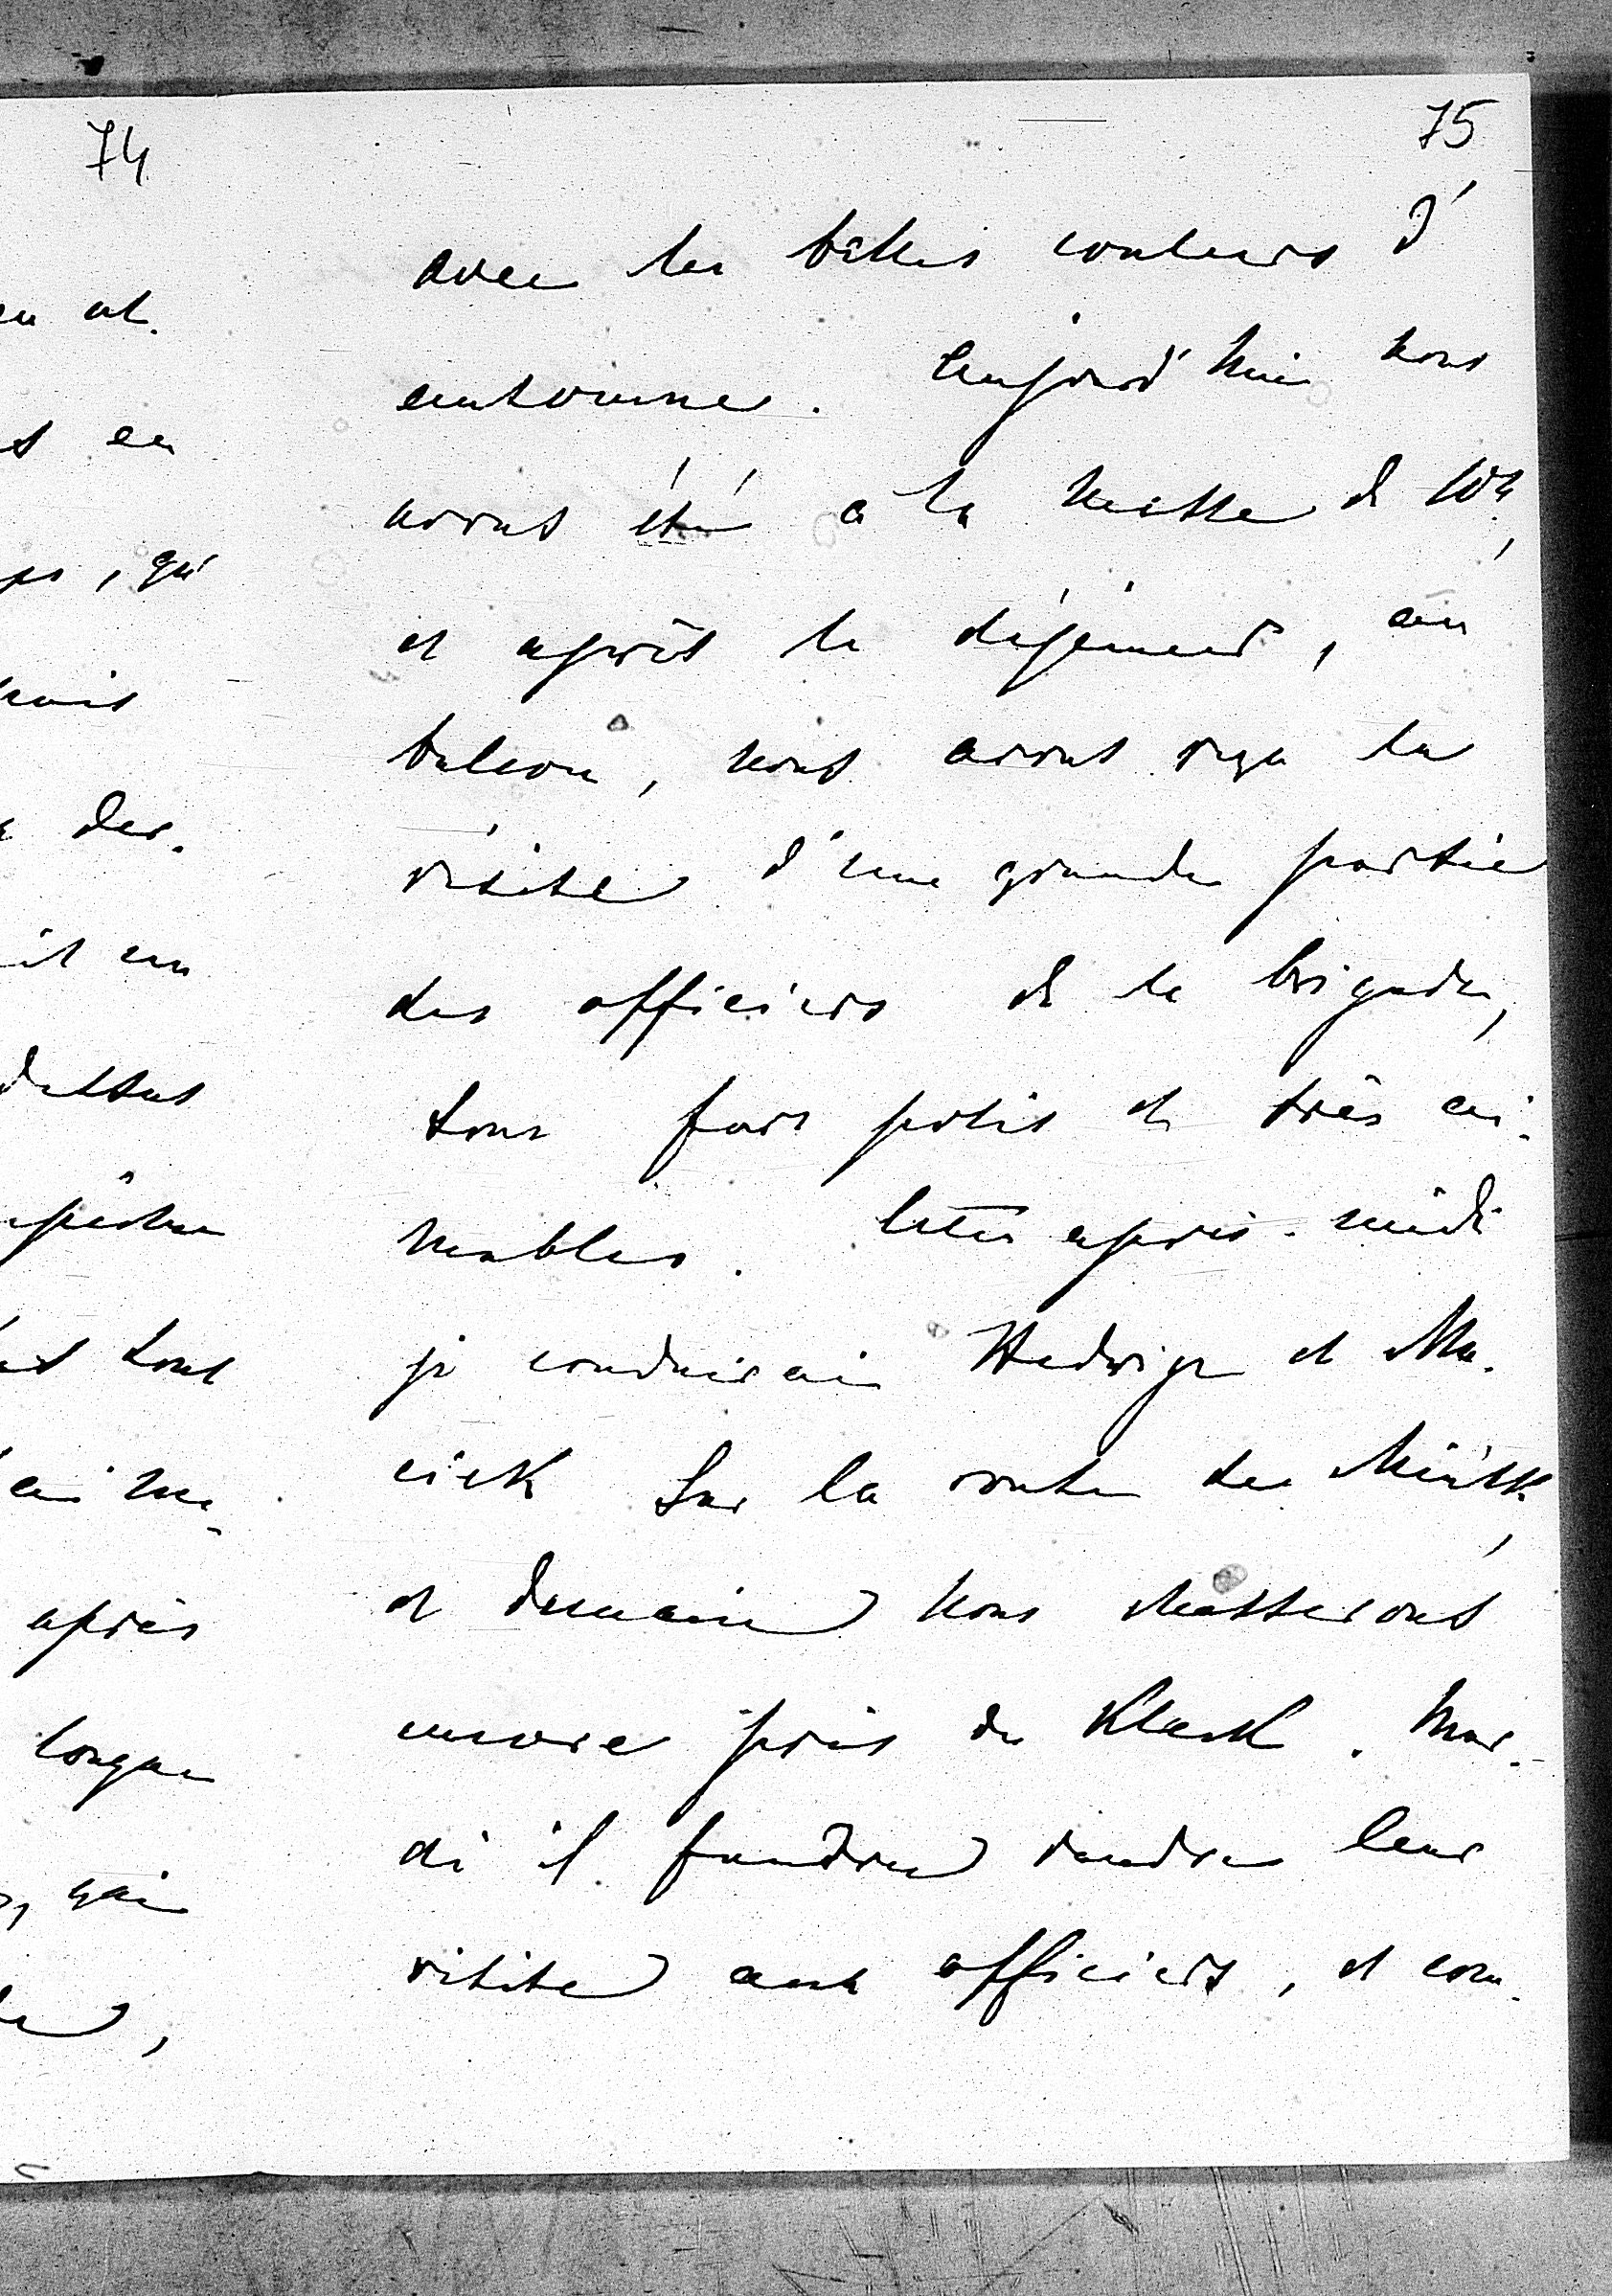 74
en at.
s en
ps, qui
mais
Der.
it un
dessus
tous
aime
après
longue
qui
75
avec les belles couleurs d'
automne. Aujourd'hui nous
avons été à la messe de 10h,
et après le déjeuner, au
balcon, nous avons reçu la
visite d'une grande partie
des officiers de la brigade,
tous fort polis et très ai-
mables. Cette après-midi
je conduirai Hedwige et Ma-
ciek sur la route de Minsk,
et demain nous chasserons
encore près de Kleck. Mar-
di il faudra rendre leur
visite aux officiers, et com-